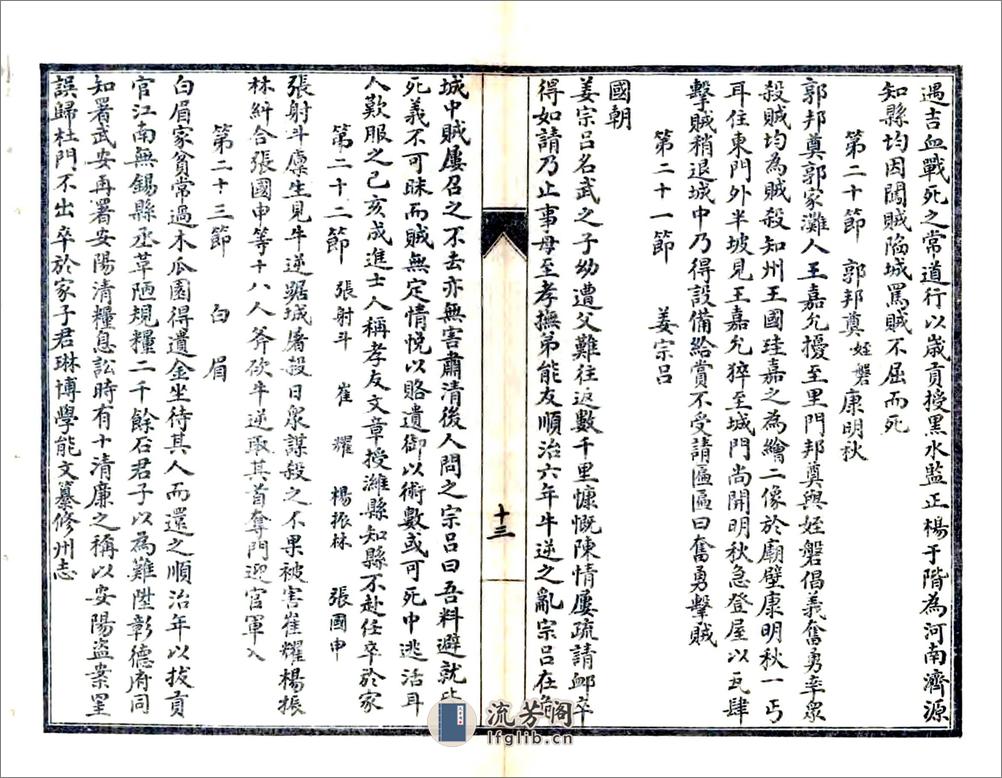 遇吉血戰死之常道行以歲貢授黑水監正楊于階為河南濟源
知縣均因闖賊陷城罵賊不屈而死
第二十節 郭邦奠 姪磐 康明秋
郭邦奠郭家灘人王嘉允擾至里門邦奠與姪磐倡義奮勇率眾
殺賊均為賊殺知州王國珪嘉之為繪二像於廟壁康明秋一丐
耳住東門外半坡見王嘉允猝至城門尚開明秋急登屋以瓦肆
擊賊稍退城中乃得設備給賞不受請匾匾曰奮勇擊賊
第二十一節 姜宗呂
國朝
姜宗呂名武之子幼遭父難往返數千里慷慨陳情屢疏請卹卒
得如請乃止事母至孝撫弟能友順治六年牛逆之亂宗呂在
十三
城中賊屢召之不去亦無害肅清後人問之宗呂曰吾料避就此
死義不可昧而賊無定情悅以賂遺御以術數或可死中逃活耳
人歎服之己亥成進士人稱孝友文章授濰縣知縣不赴任卒於家
第二十二節 張射斗 崔耀 楊振林 張國申
張射斗廩生見牛逆踞城屠殺日眾謀殺之不果被害崔耀楊振
林糾合張國申等十八人斧砍牛逆取其首奪門迎官軍入
第二十三節 白眉
白眉家貧常過木瓜園得遺金坐待其人而還之順治年以拔貢
官江南無錫縣丞革陋規糧二千餘石君子以為難陞彰德府同
知署武安再署安陽清糧息訟時有十清廉之稱以安陽盜案罣
誤歸杜門不出卒於家子君琳博學能文纂修州志
流芳閣
lfglib.cn